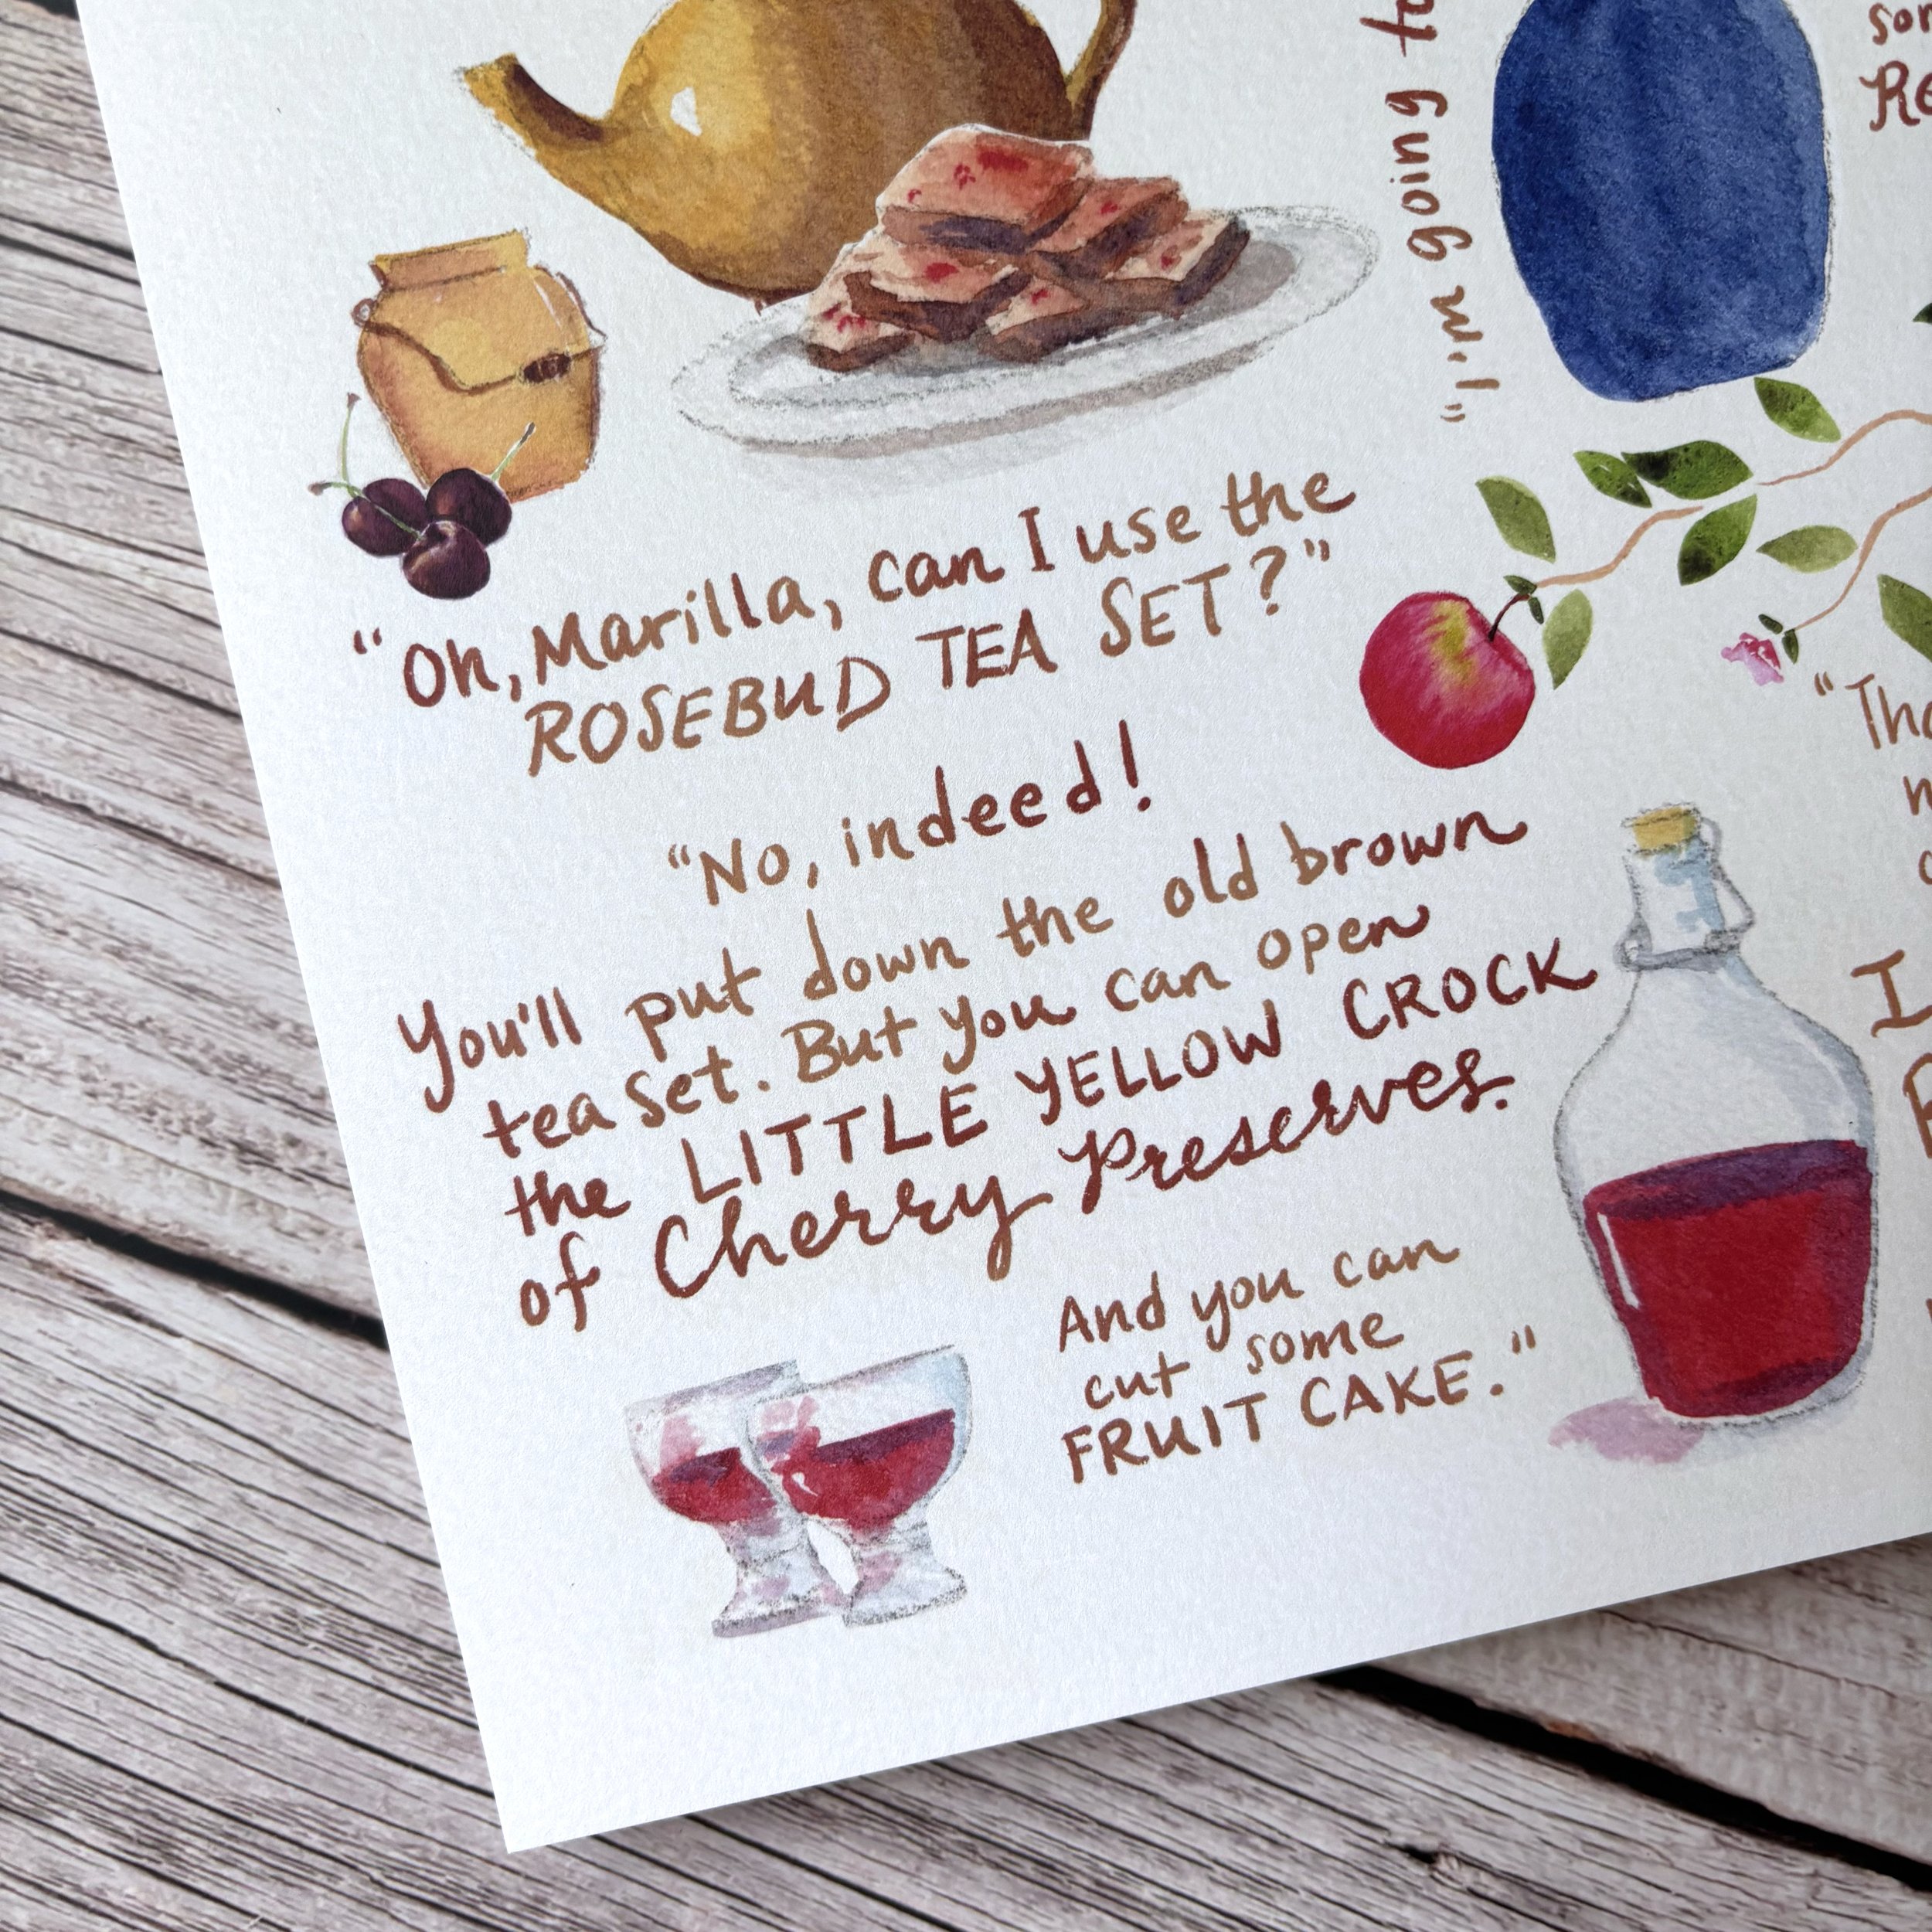 "Oh, Marilla, can I use the
ROSEBUD TEA SET?"
"No, indeed!
You'll put down the old brown
tea set. But you can open
the LITTLE YELLOW CROCK
of Cherry Preserves.
And you can
cut some
FRUIT CAKE."
"I'm going
I